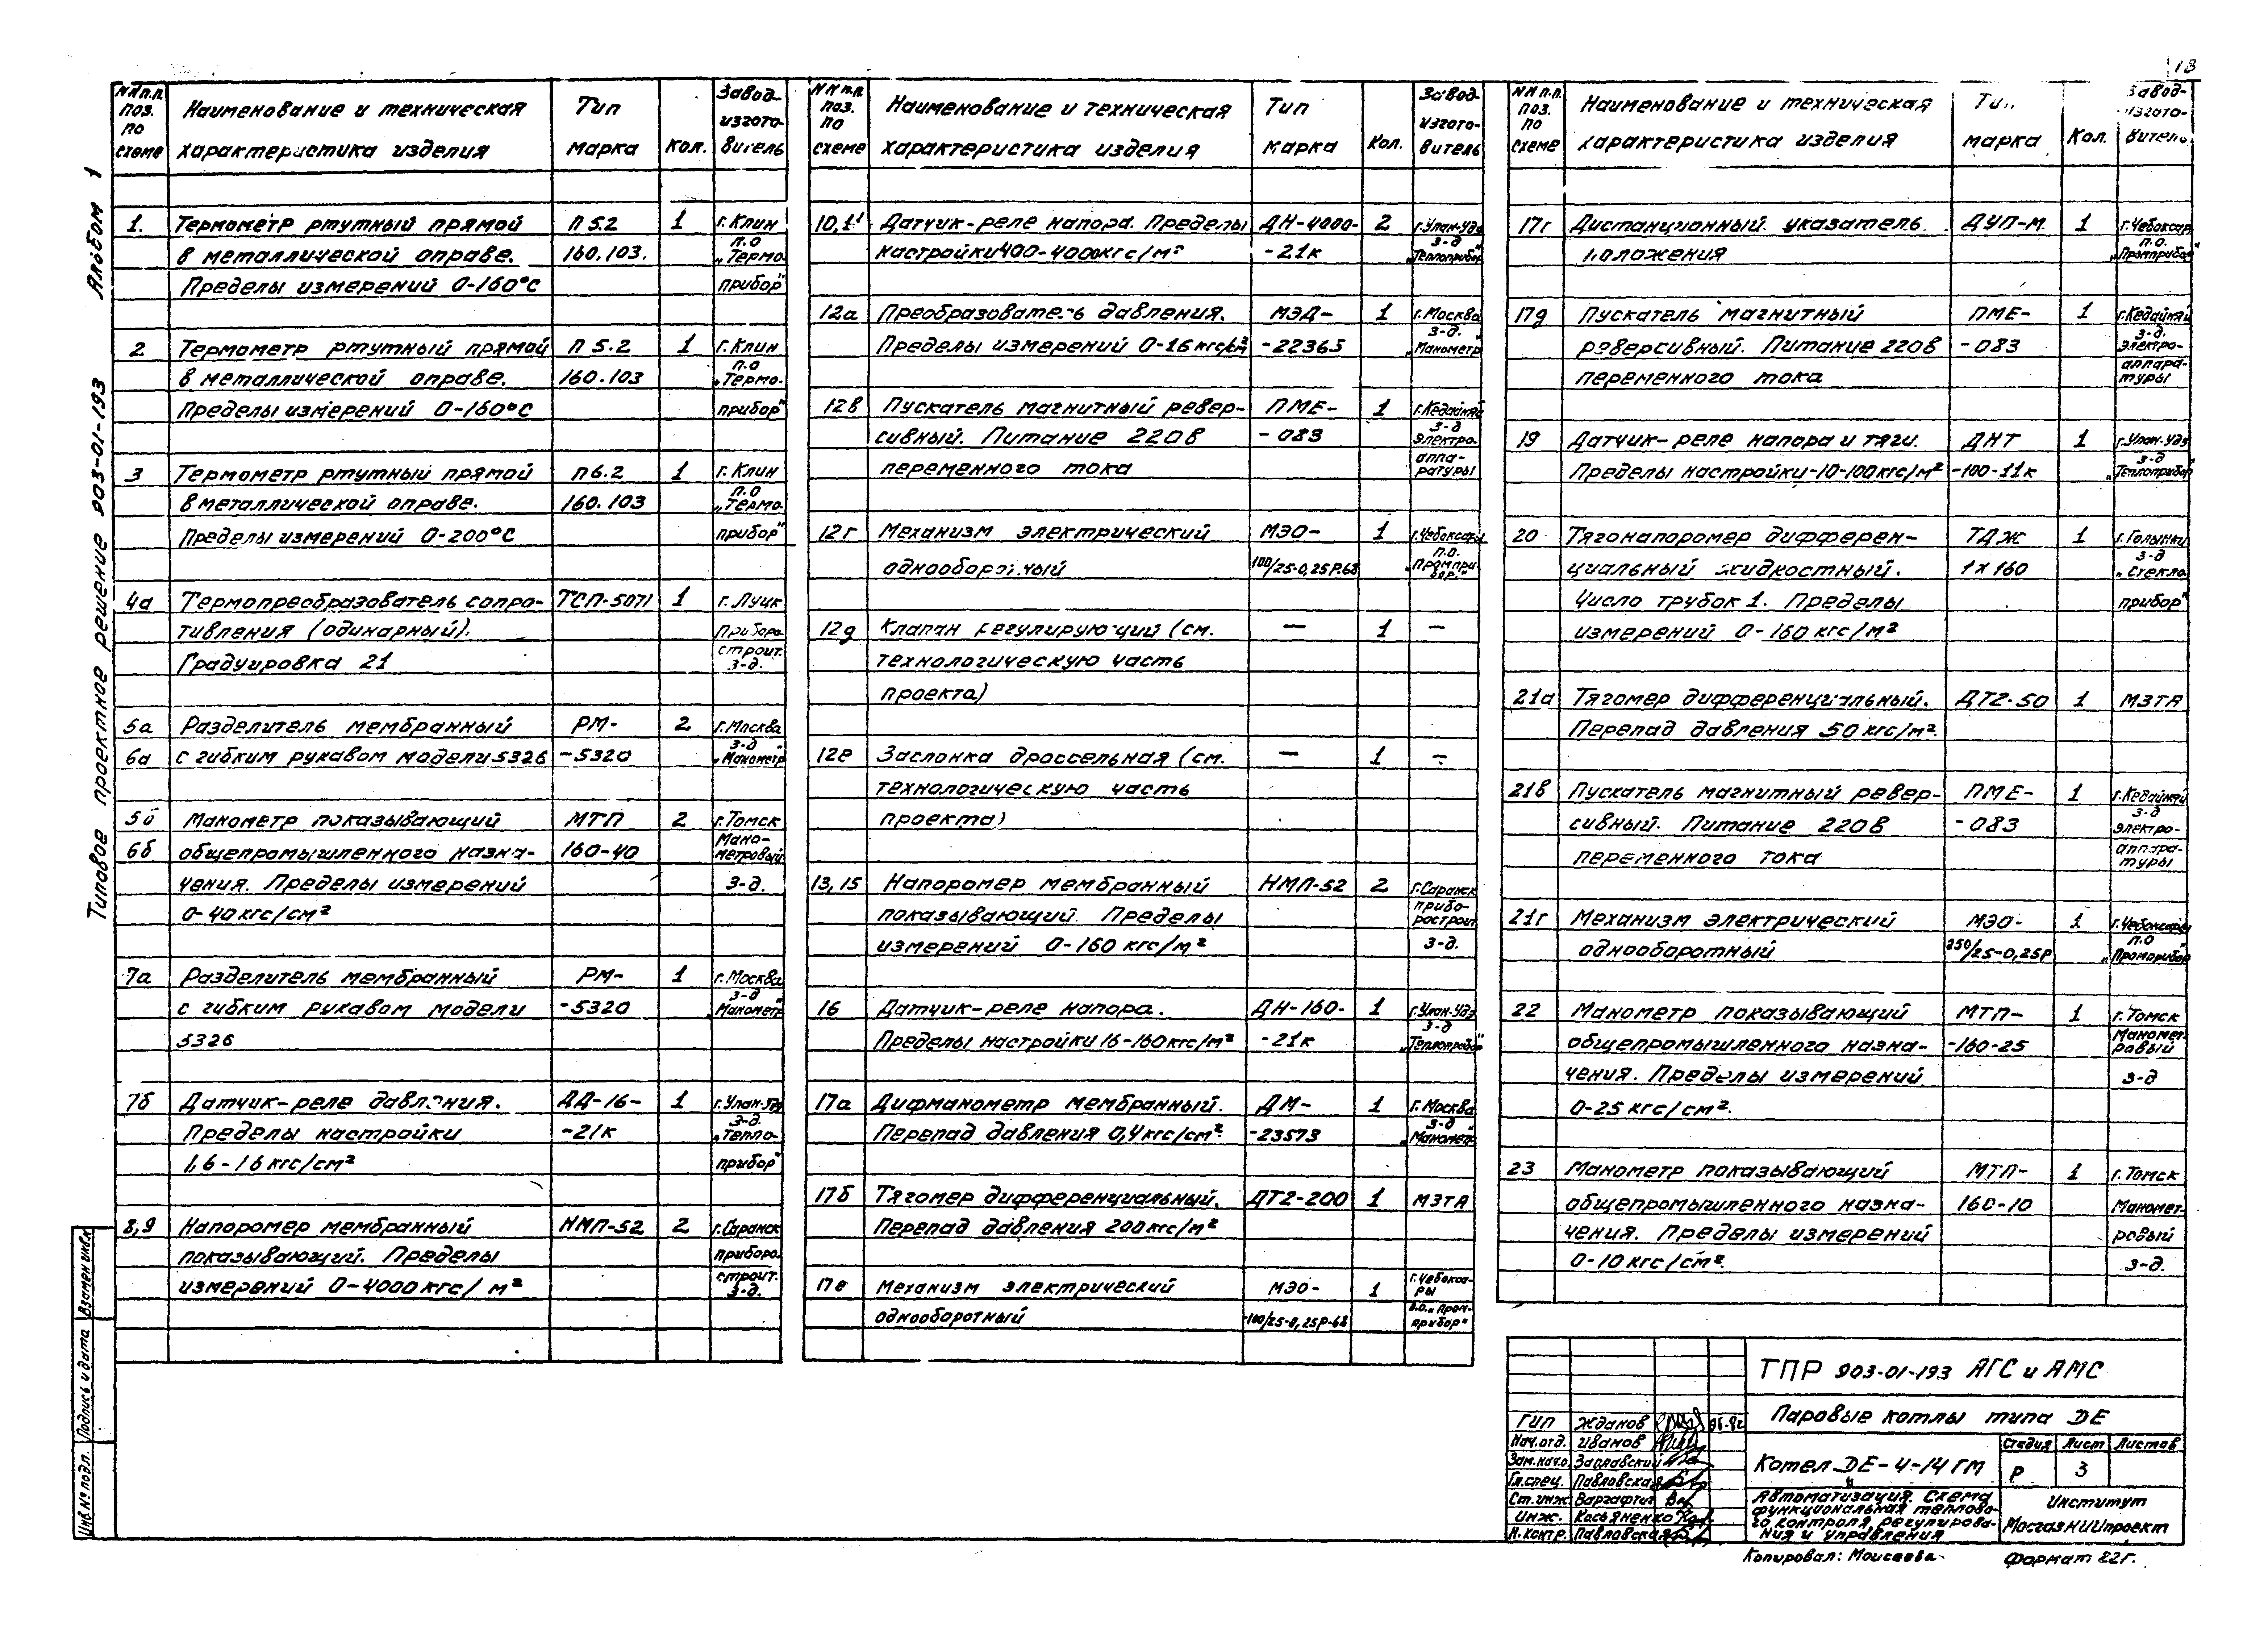 18
Типовое проектное решение 903-01-193 Альбом 1
NN п.п. поз. по схеме | Наименование и техническая характеристика изделия | Тип марка | Кол. | Завод-изготовитель
1. Термометр ртутный прямой П 5.2 1 г. Клин
в металлической оправе. 160.103. п.о „Термо-
Пределы измерений 0-160°С прибор"
2 Термометр ртутный прямой П 5.2 1 г. Клин
в металлической оправе. 160.103 п.о „Термо-
Пределы измерений 0-160°С прибор"
3 Термометр ртутный прямой П 6.2 1 г. Клин
в металлической оправе. 160.103 п.о „Термо-
Пределы измерений 0-200°С прибор"
4а Термопреобразователь сопро- ТСП-5071 1 г. Луцк
тивления (одинарный). Приборо-
Градуировка 21 строит. з-д.
5а Разделитель мембранный РМ- 2 г. Москва
6а с гибким рукавом модели 5326 -5320 з-д „Манометр"
5б Манометр показывающий МТП 2 г. Томск
6б общепромышленного назна- 160-40 Мано-метровый
чения. Пределы измерений з-д.
0-40 кгс/см²
7а Разделитель мембранный РМ- 1 г. Москва
с гибким рукавом модели -5320 з-д „Манометр"
5326
7б Датчик-реле давления. ДД-16- 1 г. Улан-Удэ
Пределы настройки -21к з-д. „Тепло-
1,6-16 кгс/см² прибор"
8,9 Напоромер мембранный НМП-52 2 г. Саранск
показывающий. Пределы приборо-
измерений 0-4000 кгс/м² строит. з-д.
NN п.п. поз. по схеме | Наименование и техническая характеристика изделия | Тип марка | Кол. | Завод-изготовитель
10,11 Датчик-реле напора. Пределы ДН-4000- 2 г. Улан-Удэ
настройки 400-4000 кгс/м² -21к з-д „Теплоприбор"
12а Преобразователь давления. МЭД- 1 г. Москва
Пределы измерений 0-16 кгс/см² -22365 з-д. „Манометр"
12в Пускатель магнитный ревер- ПМЕ- 1 г. Кедайняй
сивный. Питание 220в -083 з-д электро-
переменного тока аппа-ратуры
12г Механизм электрический МЭО- 1 г. Чебоксары
однооборотный 100/25-0,25Р-68 п.о. „Промпри-бор."
12д Клапан регулирующий (см. — 1 —
технологическую часть
проекта)
12е Заслонка дроссельная (см. — 1 —
технологическую часть
проекта)
13,15 Напоромер мембранный НМП-52 2 г. Саранск
показывающий. Пределы прибо-ростроит.
измерений 0-160 кгс/м² з-д.
16 Датчик-реле напора. ДН-160- 1 г. Улан-Удэ
Пределы настройки 16-160 кгс/м² -21к з-д „Теплоприбор"
17а Дифманометр мембранный. ДМ- 1 г. Москва
Перепад давления 0,4 кгс/см² -23573 з-д „Манометр"
17б Тягомер дифференциальный. ДТ2-200 1 МЗТА
Перепад давления 200 кгс/м²
17е Механизм электрический МЭО- 1 г. Чебокса-ры
однооборотный -100/25-0,25Р-68 п.о. „Пром-прибор"
NN п.п. поз. по схеме | Наименование и техническая характеристика изделия | Тип марка | Кол. | Завод-изготовитель
17г Дистанционный указатель ДУП-М 1 г. Чебоксары
положения п.о. „Промприбор"
17д Пускатель магнитный ПМЕ- 1 г. Кедайняй
реверсивный. Питание 220в -083 з-д. электро-
переменного тока аппара-туры
19 Датчик-реле напора и тяги. ДНТ 1 г. Улан-Удэ
Пределы настройки -10-100 кгс/м² -100-11к з-д „Теплоприбор"
20 Тягонапоромер дифферен- ТДЖ 1 г. Голынки
циальный жидкостный. 1х160 з-д „Стекло-
Число трубок 1. Пределы прибор"
измерений 0-160 кгс/м²
21а Тягомер дифференциальный. ДТ2-50 1 МЗТА
Перепад давления 50 кгс/м².
21в Пускатель магнитный ревер- ПМЕ- 1 г. Кедайняй
сивный. Питание 220в -083 з-д электро-
переменного тока аппара-туры
21г Механизм электрический МЭО- 1 г. Чебоксары
однооборотный 250/25-0,25Р п.о „Промприбор"
22 Манометр показывающий МТП- 1 г. Томск
общепромышленного назна- -160-25 Маномет-ровый
чения. Пределы измерений з-д
0-25 кгс/см².
23 Манометр показывающий МТП- 1 г. Томск
общепромышленного назна- 160-10 Маномет-
чения. Пределы измерений ровый
0-10 кгс/см². з-д.
Инв. № подл. Подпись и дата Взамен инв. №
ТПР 903-01-193 АГС и АМС
Паровые котлы типа ДЕ
ГИП Жданов
Нач. отд. Иванов
Зам. нач. о. Заплавский
Гл. спец. Павловская
Ст. инж. Варгафтиг
Инж. Касьяненко
Н. контр. Павловская
Котел ДЕ-4-14 ГМ
Стадия Лист Листов
Р 3
Автоматизация. Схема
функциональная теплово-
го контроля регулирова-
ния и управления
Институт
МосгазНИИпроект
Копировал: Моисеева
Формат 22г.